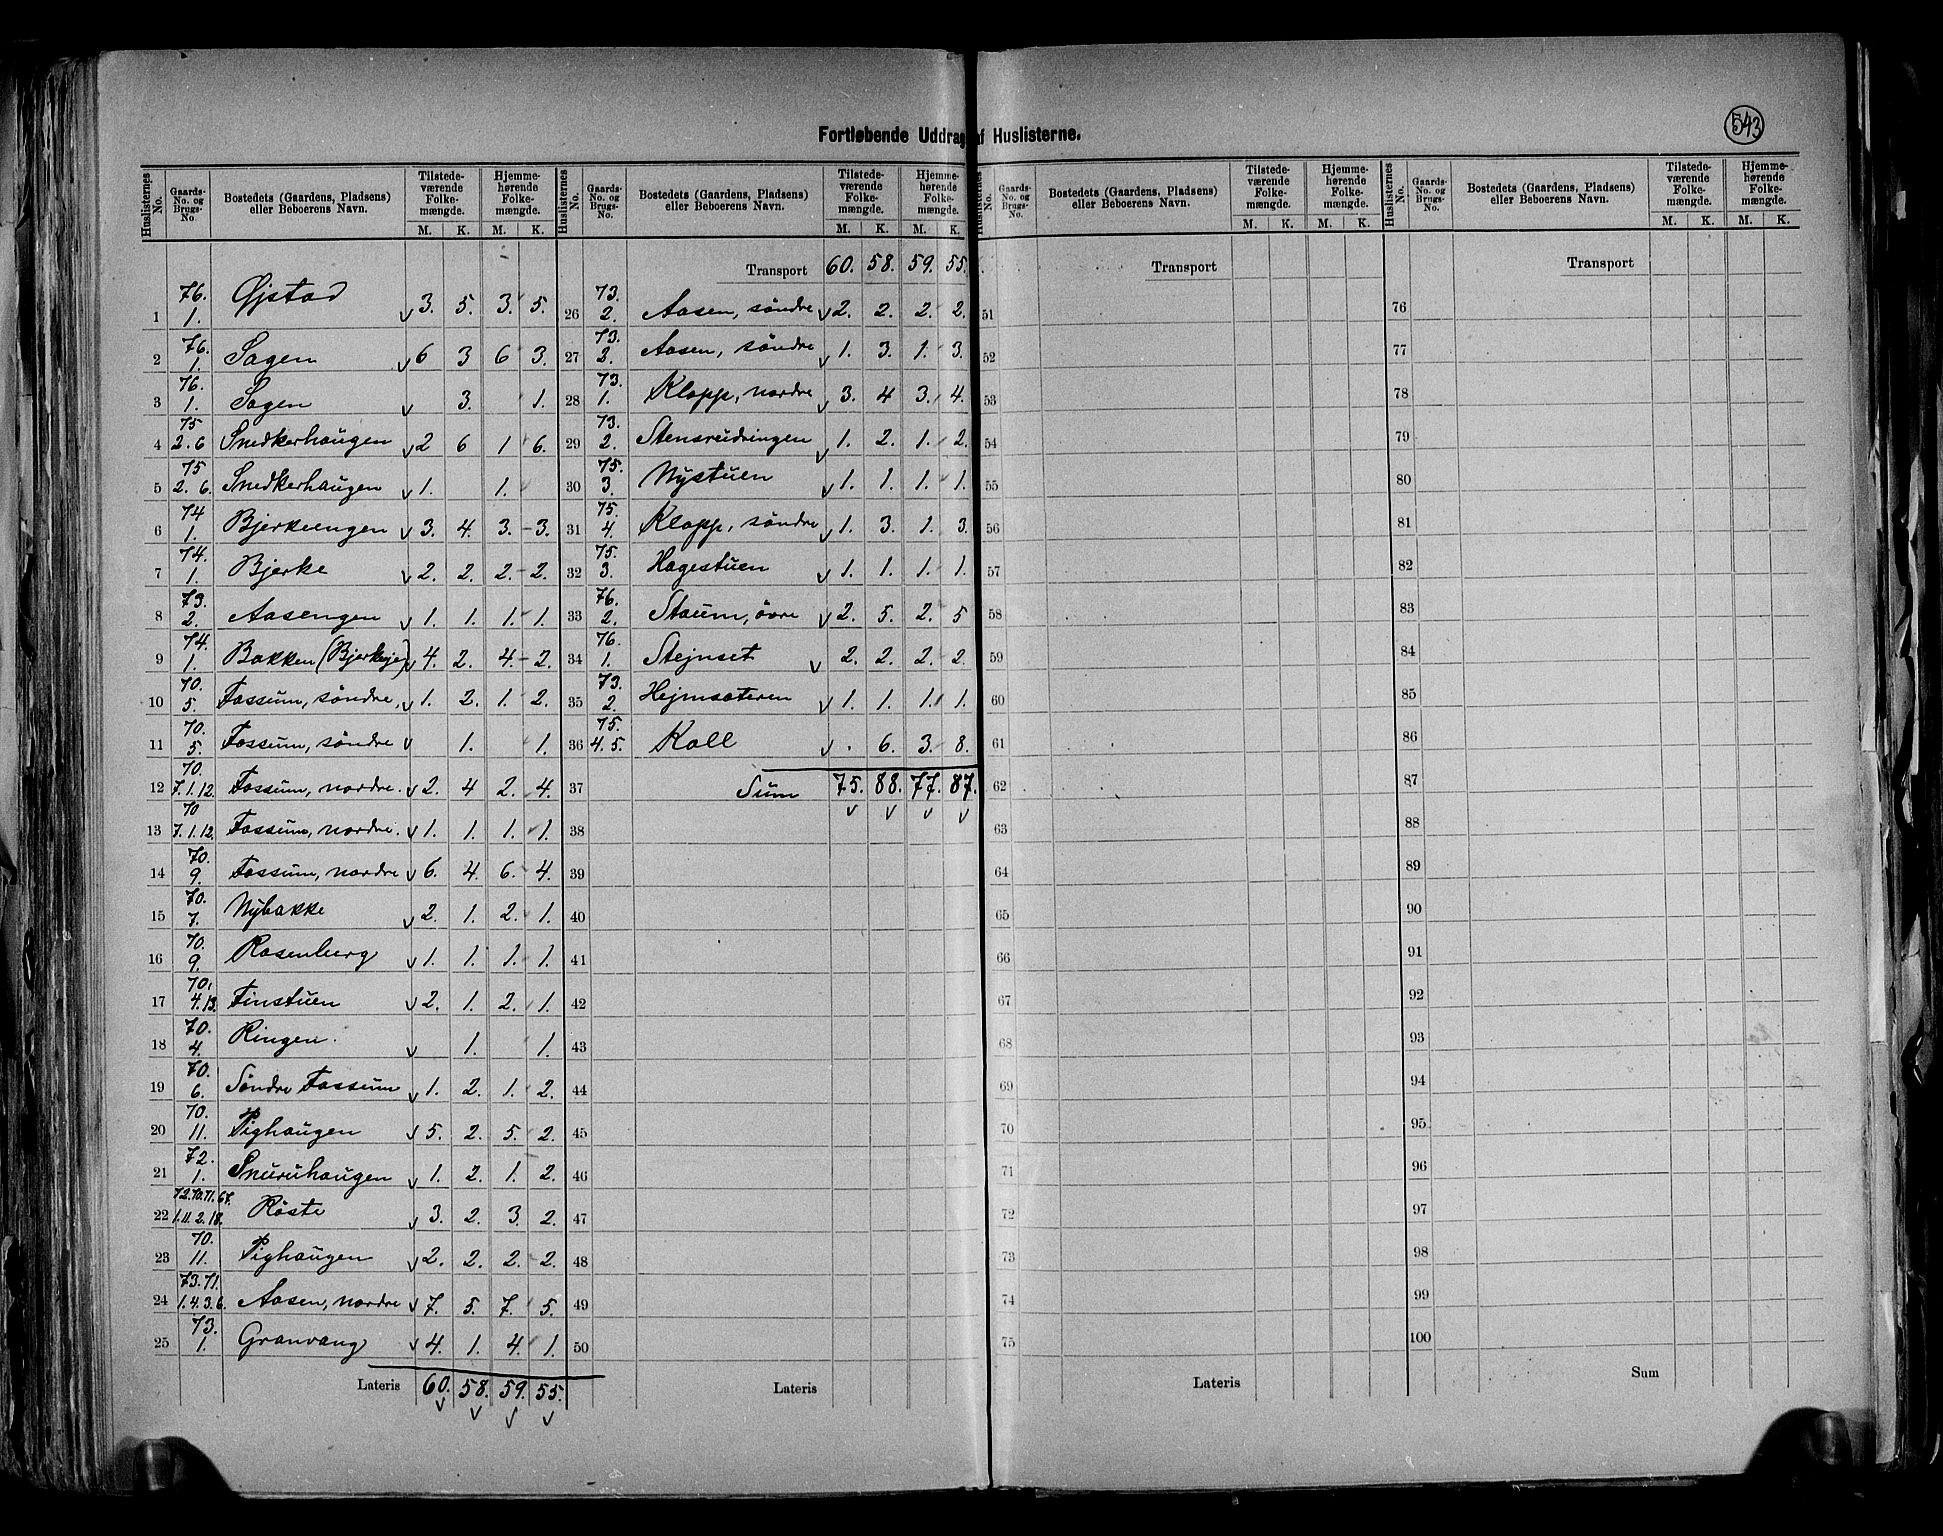 543
Fortløbende Uddrag af Huslisterne.
Huslisternes No. | Gaards-No. og Brugs-No | Bostedets (Gaardens, Pladsens) eller Beboerens Navn. | Tilstedeværende Folkemængde. M. K. | Hjemmehørende Folkemængde. M. K.
1 | 76. 1. | Øjstad | 3. 5. | 3. 5.
2 | 76. 1. | Sagen | 6 3 | 6 3.
3 | 76. 1. | Sagen | 3. | 1.
4 | 75 2. 6 | Snedkerhaugen | 2 6 | 1 6.
5 | 75 2. 6. | Snedkerhaugen | 1. | 1.
6 | 74 1. | Bjerkeengen | 3. 4. | 3. 3.
7 | 74. 1. | Bjerke | 2. 2. | 2. 2.
8 | 73. 2. | Aasengen | 1. 1. | 1. 1.
9 | 74. 1. | Bakken (Bjerkeje) | 4. 2. | 4 2.
10 | 70. 5. | Fossum, søndre, | 1. 2. | 1. 2.
11 | 70. 5. | Fossum, søndre | 1. | 1.
12 | 70. 7. 1. 12. | Fossum, nordre. | 2. 4 | 2. 4.
13 | 70 7. 1. 12. | Fossum, nordre. | 1. 1. | 1. 1.
14 | 70. 9. | Fossum, nordre | 6. 4 | 6. 4.
15 | 70. 7. | Nybakke | 2. 1. | 2. 1.
16 | 70. 9. | Rosenberg | 1. 1. | 1. 1.
17 | 70. 4. 13. | Finstuen | 2. 1. | 2. 1.
18 | 70. 4. | Ringen. | 1. | 1.
19 | 70. 6. | Søndre Fossum | 1. 2. | 1. 2.
20 | 70. 11. | Pighaugen | 5. 2. | 5. 2.
21 | 72. 1. | Snuruhaugen | 1. 2. | 1. 2.
22 | 72. 70. 71. 67. 1. 11. 2. 18. | Røste | 3. 2. | 3. 2.
23 | 70. 11. | Pighaugen | 2. 2. | 2. 2.
24 | 73. 71. 1. 4. 3. 6. | Aasen, nordre | 7. 5. | 7. 5.
25 | 73. 1. | Granvang | 4. 1. | 4. 1.
Lateris | 60. 58. | 59. 55.
Huslisternes No. | Gaards-No. og Brugs-No. | Bostedets (Gaardens, Pladsens) eller Beboerens Navn. | Tilstedeværende Folkemængde. M. K. | Hjemmehørende Folkemængde. M. K.
Transport | 60. 58. | 59. 55.
26 | 73. 2. | Aasen, søndre | 2. 2. | 2. 2.
27 | 73. 2. | Aasen, søndre | 1. 3. | 1. 3.
28 | 73. 1. | Klopp, nordre | 3. 4 | 3. 4.
29 | 73. 2. | Stensrudringen | 1. 2. | 1. 2.
30 | 75. 3. | Nystuen | 1. 1. | 1. 1.
31 | 75. 4. | Klopp, søndre | 1. 3. | 1. 3.
32 | 75. 3. | Hagestuen | 1. 1. | 1. 1.
33 | 76. 2. | Staum, øvre | 2. 5. | 2. 5
34 | 76. 1. | Stejnset | 2. 2. | 2. 2.
35 | 73. 2. | Hejmsæteren | 1. 1. | 1. 1.
36 | 75. 4. 5. | Koll | . 6. | 3. 8.
37 | Sum | 75. 88. | 77. 87.
38
39
40
41
42
43
44
45
46
47
48
49
50
Lateris
Huslisternes No. | Gaards-No. og Brugs-No. | Bostedets (Gaardens, Pladsens) eller Beboerens Navn. | Tilstedeværende Folkemængde. M. K. | Hjemmehørende Folkemængde. M. K.
Transport
51
52
53
54
55
56
57
58
59
60
61
62
63
64
65
66
67
68
69
70
71
72
73
74
75
Lateris
Huslisternes No. | Gaards-No. og Brugs-No. | Bostedets (Gaardens, Pladsens) eller Beboerens Navn. | Tilstedeværende Folkemængde. M. K. | Hjemmehørende Folkemængde. M. K.
Transport
76
77
78
79
80
81
82
83
84
85
86
87
88
89
90
91
92
93
94
95
96
97
98
99
100
Sum